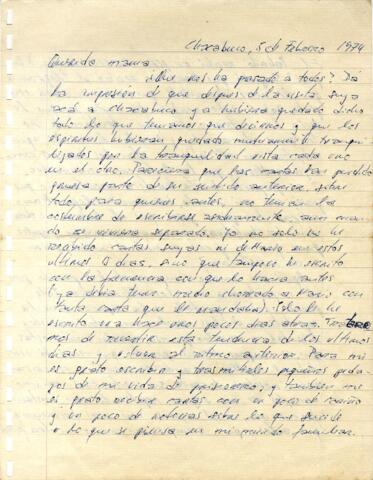 Chacabuco, 5 de Febrero 1974
Querida mamá
¿Que nos ha pasado a todos? Da
la impresión de que después de la visita suya
acá a Chacabuco ya hubiera quedado dicho
todo lo que teníamos que decirnos y que los
espíritus hubieran quedado mutuamente tranqui-
lizados por la tranquilidad vista cada uno
en el otro. Pareciera que las cartas han perdido
gran parte de su sentido anterior, sobre
todo para quienes antes, no tenían la
costumbre de escribirse asiduamente, aún cuan-
do se vivieran separados. Yo no solo no he
recibido cartas suyas ni de Mario en estos
últimos días, sino que tampoco he escrito
con la frecuencia con que lo hacía antes
(ya debía tener medio choreado a Mario con
tanta carta que le mandaba). Solo le he
escrito una hace unos pocos días atrás. Trate
mos de invertir esta tendencia de los últimos
días y volver al ritmo anterior. Para mí
es grato escribir y trasmitirles pequeños peda-
zos de mi vida de prisionero, y también me
es grato recibir cartas con un poco de cariño
y un poco de noticias sobre lo que sucede
o lo que se piensa en mi mundo familiar.